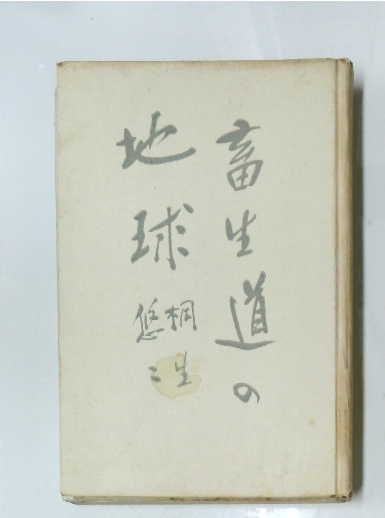 畜生道の
地球
桐生
悠々